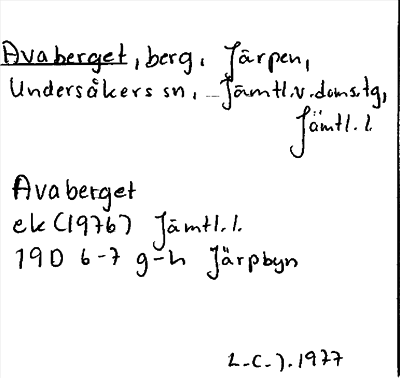 Avaberget, berg. Järpen,
Undersåkers sn, Jämtl.v.doms.tg,
Jämtl. l.
Avaberget
ek (1976) Jämtl. l.
19D 6-7 g-h Järpbyn
L.C.J. 1977